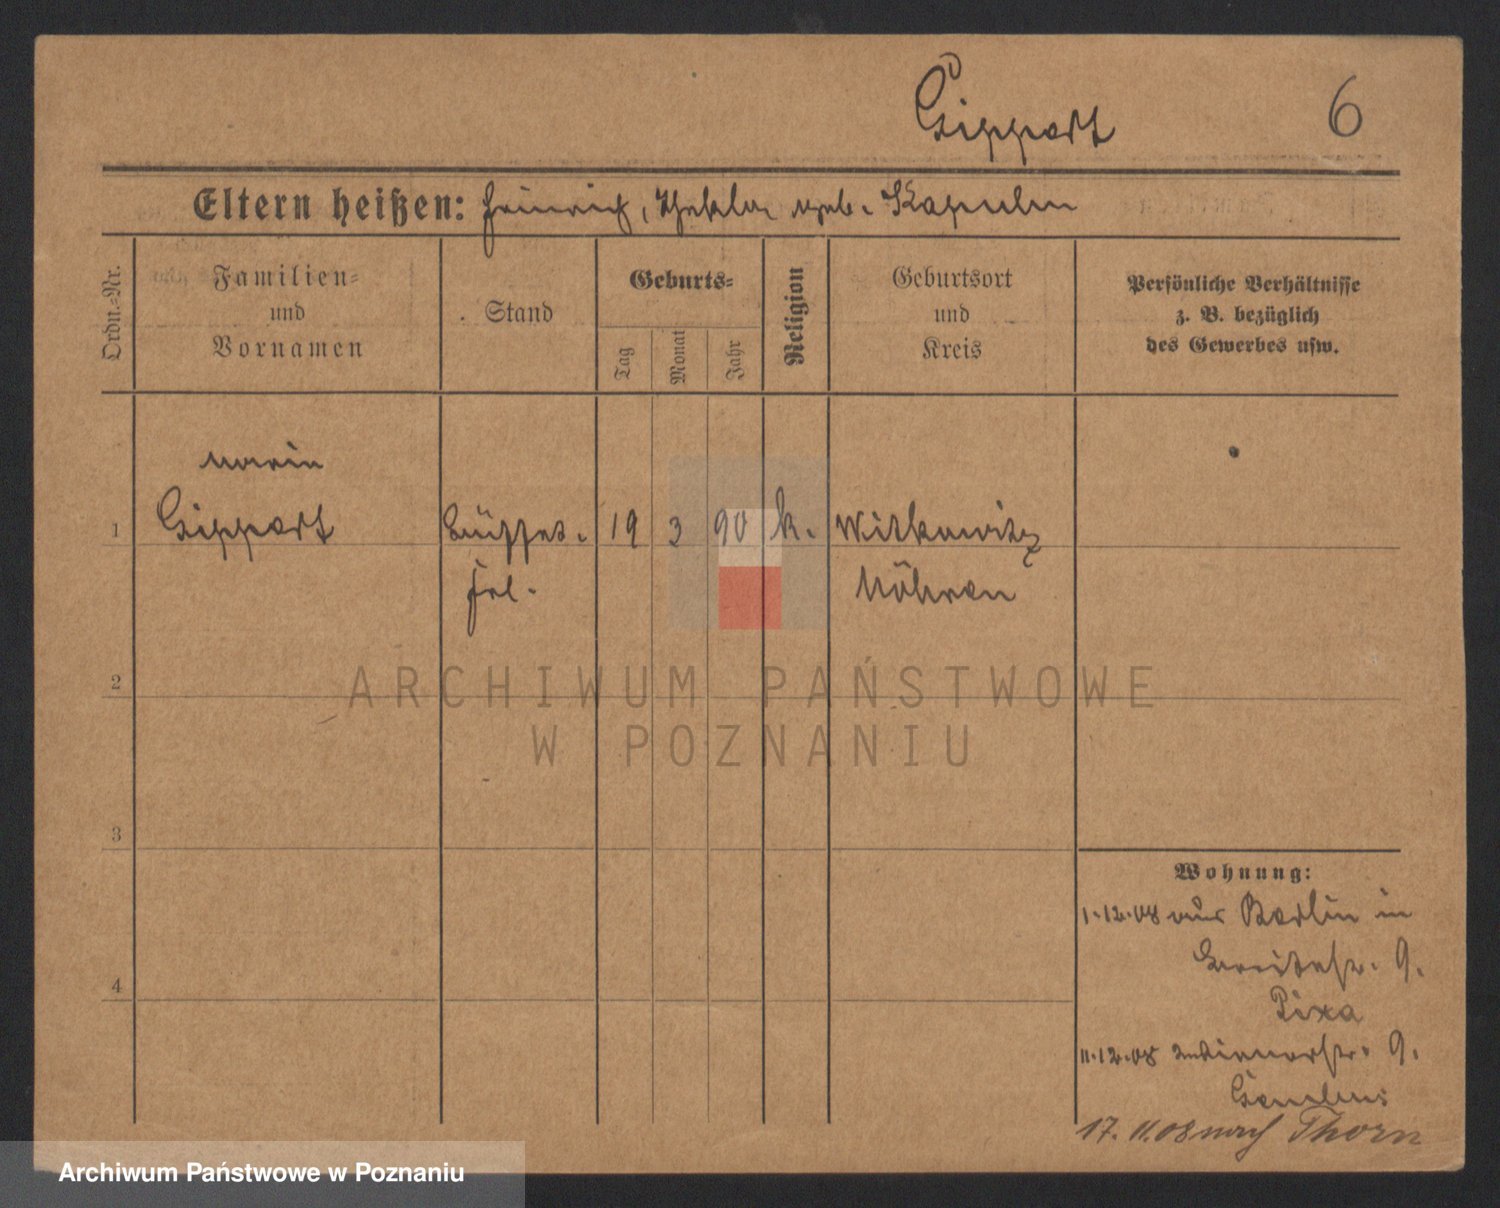 Gippert
6
Eltern heißen: Heinrich, Thekla geb. Kapulin
Ordn.-Nr.
Familien-
und
Vornamen
Stand
Geburts-
Tag
Monat
Jahr
Religion
Geburtsort
und
Kreis
Persönliche Verhältnisse
z. B. bezüglich
des Gewerbes usw.
Marie
1 Gippert Büffet- 19 3 90 k. Witkowitz
frl. Mähren
2
ARCHIWUM PAŃSTWOWE
W POZNANIU
3
Wohnung:
1.12.08 aus Berlin in
Breitestr. 9.
Pixa
4
11.12.08 9.
17. 11.08 nach Thorn
Archiwum Państwowe w Poznaniu